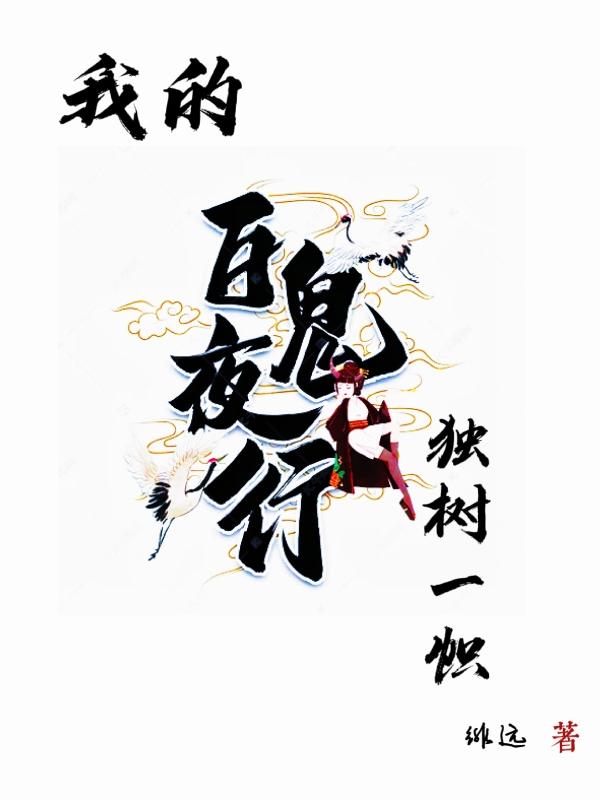 我的
百鬼
夜行
独树一帜
远 著